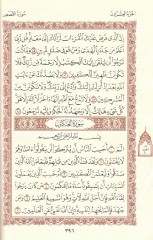 الجزء العشرون
سورة القصص
إن الذي فرض عليك القرءان لرادك إلى معاد قل ربي أعلم
من جاء بالهدى ومن هو في ضلال مبين ٨٥ وما كنت
ترجوا أن يلقى إليك الكتاب إلا رحمة من ربك فلا
تكونن ظهيرا للكافرين ٨٦ ولا يصدنك عن ءايات الله
بعد إذ أنزلت إليك وادع إلى ربك ولا تكونن من
المشركين ٨٧ ولا تدع مع الله إلها ءاخر لا إله إلا هو
كل شيء هالك إلا وجهه له الحكم وإليه ترجعون ٨٨
سورة العنكبوت
بسم الله الرحمن الرحيم
الم ١ أحسب الناس أن يتركوا أن يقولوا ءامنا وهم لا يفتنون
٢ ولقد فتنا الذين من قبلهم فليعلمن الله الذين صدقوا
وليعلمن الكاذبين ٣ أم حسب الذين يعملون السيئات
أن يسبقونا ساء ما يحكمون ٤ من كان يرجوا لقاء الله فإن
أجل الله لآت وهو السميع العليم ٥ ومن جاهد فإنما
يجاهد لنفسه إن الله لغني عن العالمين ٦
٣٩٦